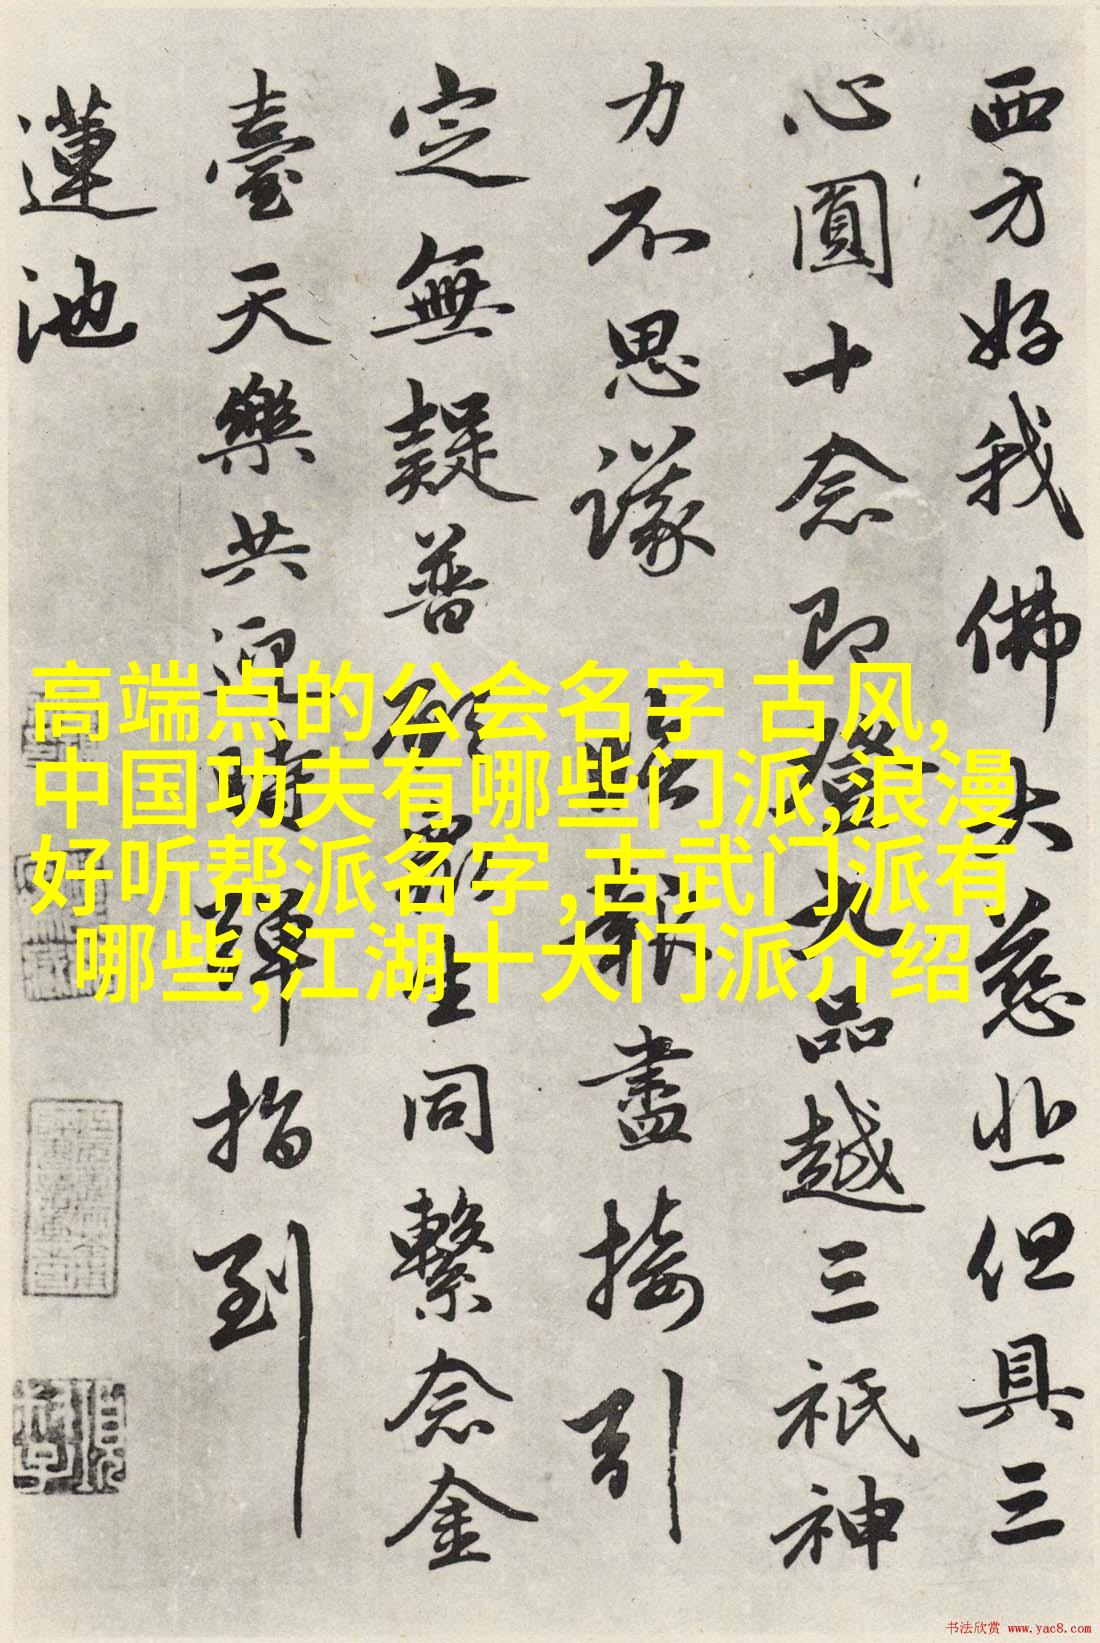 西方好我佛大慈悲但具三
心圓十念即登九品越三祇神
力不思議 報盡接引
定無疑普願眾生同繫念金
臺天樂共迎時彈指到
蓮池
高端点的公会名字 古风,
中国功夫有哪些门派,浪漫
好听帮派名字,古武门派有
哪些,江湖十大门派介绍
书法欣赏 www.yac8.com